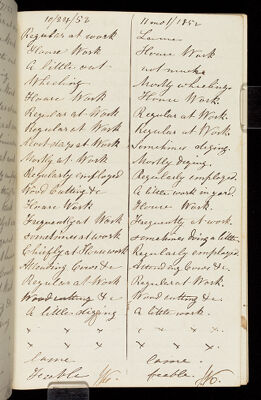 10/24/52
Regular at work
House Work
A little out
Wheeling
House Work
Regular at Work
Regular at Work
Most days at Work
Mostly at Work
Regularly employed
Wood Cutting &c
House Work
Frequently at Work
Sometimes at work
Chiefly at House work
Attending Cows &c
Regular at Work
Wood cutting & c
A little digging
" " "
" " "
lame
feeble
11 mo 1/1852
Same
House Work
not much
Mostly wheeling
House Work
Regular at Work.
Regular at Work
Sometimes diging.
Mostly diging.
Regularly employed.
A little work in yard.
House Work.
Frequently at work.
Sometimes doing a little.
Regularly employed
Attending Cows &c.
Regular at Work.
Wood cutting &c.
A little work.
" " "
" " "
lame.
feeble